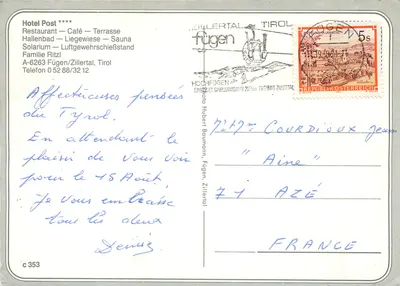 Hotel Post ****
Restaurant — Café — Terrasse
Hallenbad — Liegewiese — Sauna
Solarium — Luftgewehrschießstand
Familie Ritzl
A-6263 Fügen/Zillertal, Tirol
Telefon 0 52 88/32 12
ZILLERTAL TIROL
fügen
5s
Affectueuses pensées
du Tyrol.
En attendant le
plaisir de vous voir
pour le 15 Août
Je vous embrasse
tous les deux
Denise
Photo Hubert Baumann, Fügen, Zillertal
COURDIOUX Jean
" Aine "
71 AZÉ
FRANCE
c 353